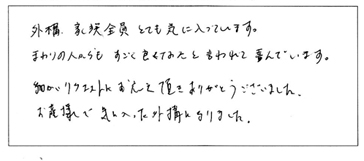 外構、家族全員とても気に入っています。
まわりの人からもすごく良くなったと言われて喜んでいます。
細かいリクエストにおんえ頂きありがとうございました。
お蔭様で気に入った外構になりました。